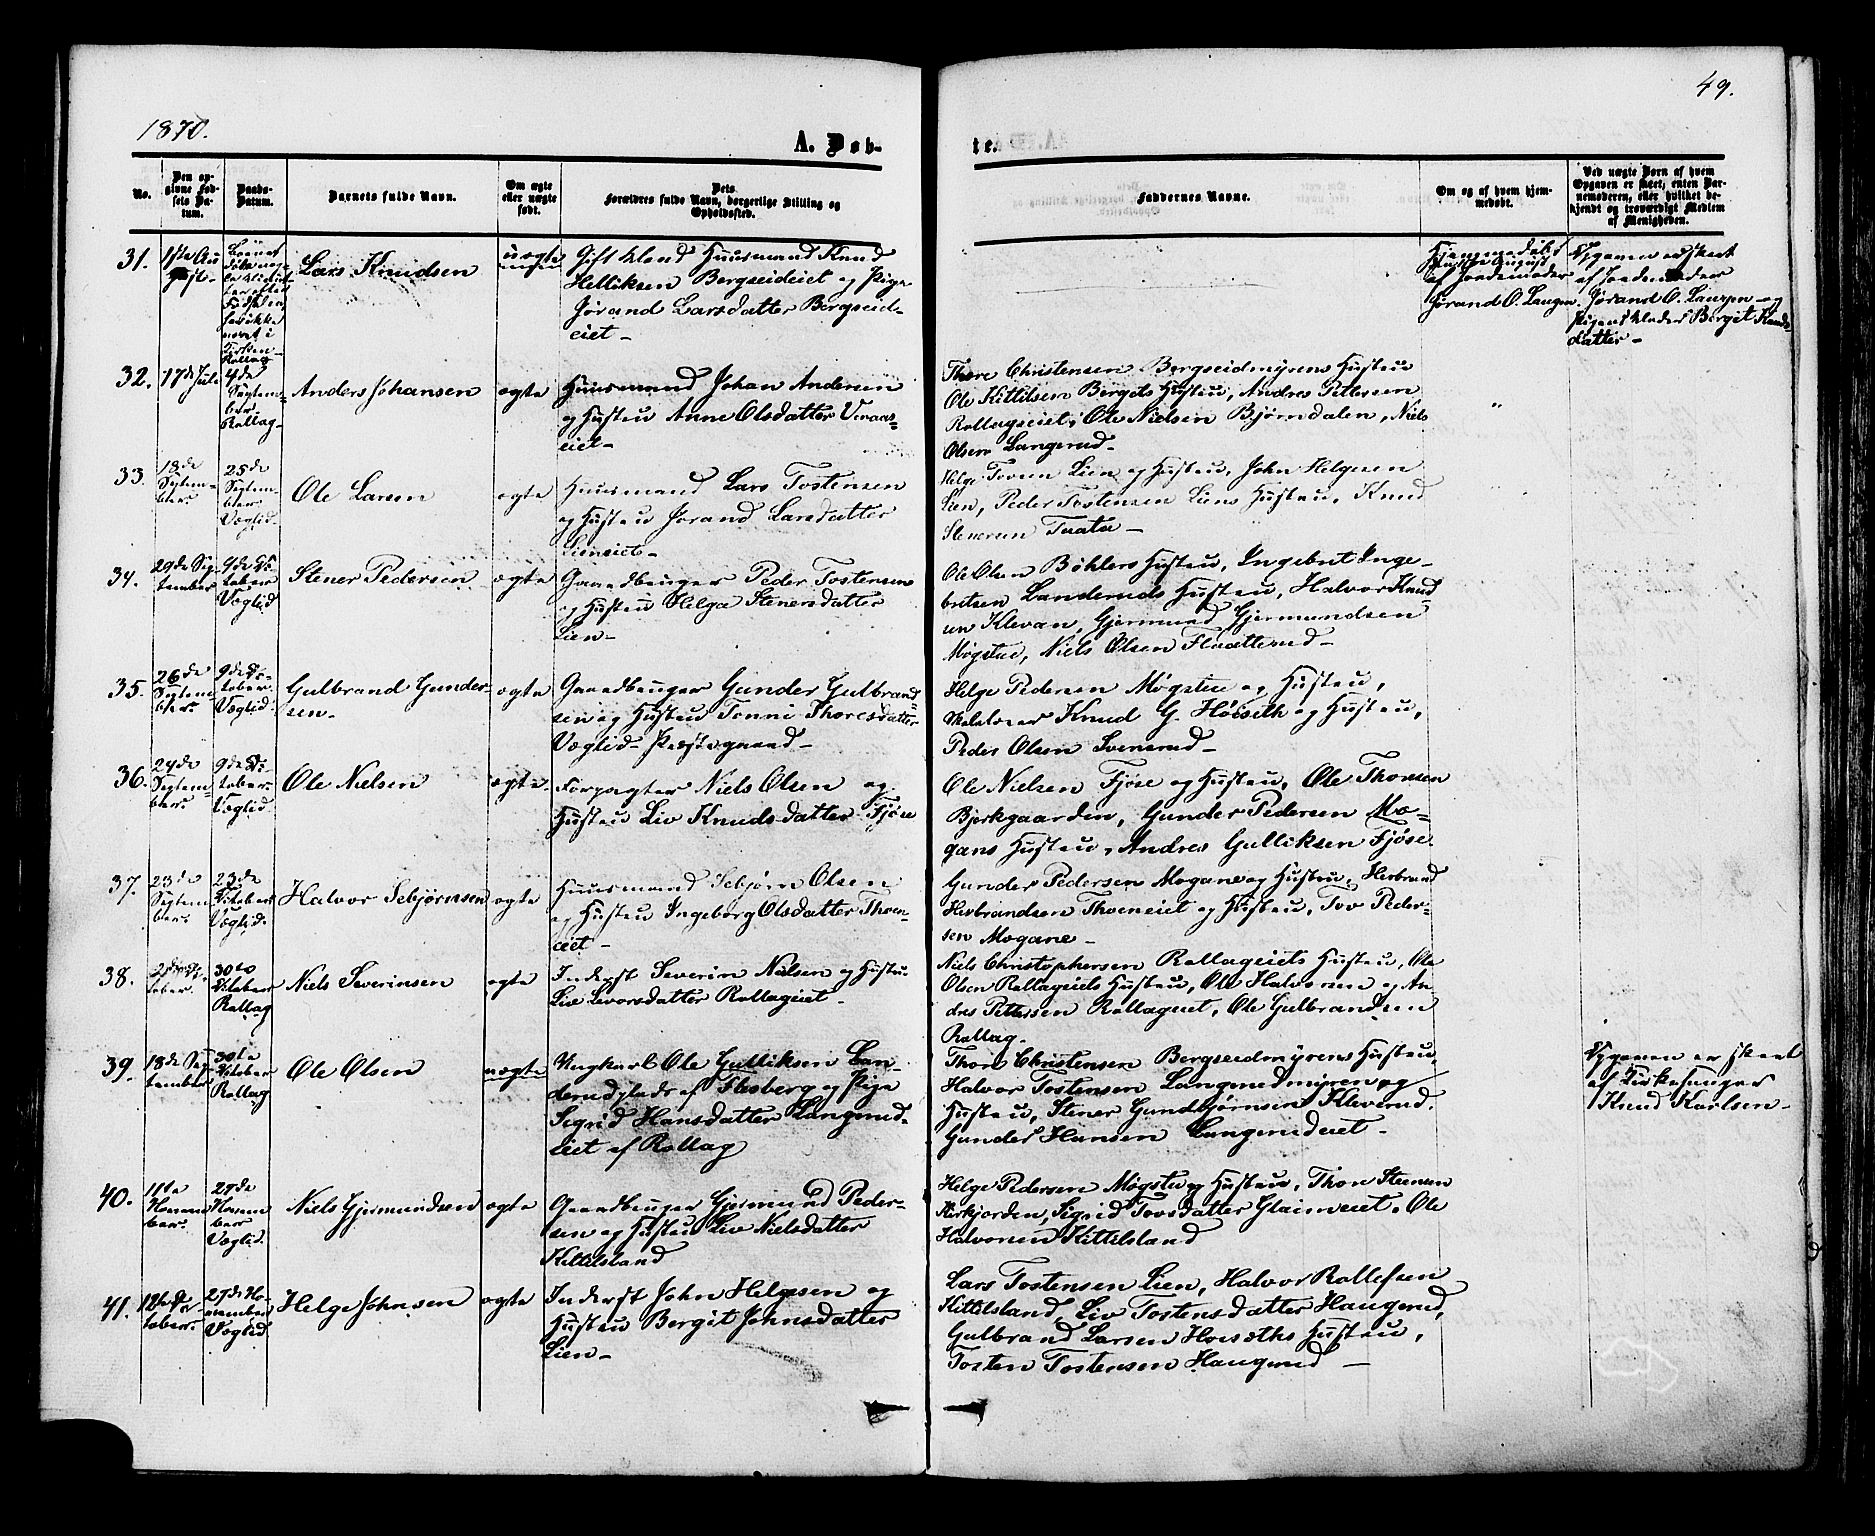 1870.
49.
A. Døb-
te.
No.
Den op-
givne Fød-
sels Da-
tum.
Daabs-
Datum.
Barnets fulde Navn.
Om ægte
eller uægte
født.
Dets
Forældres fulde Navn, borgerlige Stilling og
Opholdssted.
Faddernes Navne.
Om og af hvem hjem-
medøbt.
Ved uægte Børn af hvem
Opgaven er skeet, enten Bar-
nemoderen, eller hvilket be-
kjendt og troværdigt Medlem
af Menigheden.
31.
1ste Au
gust.
Rollag
Lars Knudsen
uægte
Gift Huusmand Knud
Helliksen Bergseideiet og Pige
Jørand Larsdatter Bergseid-
eiet -
Hjemmedøbt
August
af Jordemoder
Jørand O. Langen.
Opgaven er skeet
af Jordemoder
Jørand O. Langen - og
Bergit Knuds
datter -
32.
17de Juli
4de
Septem-
ber.
Rollag
Anders Johansen
ægte
Huusmand Johan Andersen
og Hustru Anne Olsdatter Vraas-
eiet -
Thore Christensen Bergseidmyrens Hustru
Ole Kittilsen Bergets Hustru, Andres Pettersen
Rollagseiet, Ole Nielsen Bjørndalen, Niels
Olsen Langerud -
"
33.
18de
Septem-
ber.
25de
Septem-
ber.
Væglid.
Ole Larsen
ægte
Huusmand Lars Tostensen
og Hustru Jørand Larsdatter
Lieneiet -
Helge Toven Lien og Hustru, John Helgesen
Lien, Peder Tostensen Liens Hustru, Knud
Stenersen Traata -
34.
29de Sep
tember
9de Oc-
tober
Væglid
Stener Pedersen
ægte
Gaardbruger Peder Tostensen
og Hustru Helga Stenersdatter
Lien -
Ole Olsen Bøhlers Hustru, Ingebret Inge-
bretsen Landeruds Hustru, Halvor Knud
sen Klevan, Gjermund Gjermundsen
Møgstue, Niels Olsen Flaatterud -
35.
26de
Septem
ber.
9de Oc-
tober.
Væglid.
Gulbrand Gunder-
sen -
ægte
Gaardbruger Gunder Gulbrand-
sen og Hustru Tonni Thoresdatter
Væglid Præstegaard -
Helge Pedersen Møgstue og Hustru,
Knud G. Høiseth og Hustru,
Peder Olsen Svenerud -
36.
24de
Septem-
ber.
9de Oc-
tober.
Væglid
Ole Nielsen
ægte
Forpagter Niels Olsen og
Hustru Liv Knudsdatter Fjøse
Ole Nielsen Fjøse og Hustru, Ole Thorsen
Bjerkgaarden, Gunder Pedersen Mo-
gans Hustru, Andres Gulliksen Fjøse
37.
23de
Septem
ber.
23de
October
Væglid.
Halvor Sebjørnsen
ægte
Huusmand Sebjørn Olsen
og Hustru Ingeborg Olsdatter Thoen-
eiet -
Gunder Pedersen Mogane og Hustru, Herbrand
Herbrandsen Thoeneiet og Hustru, Tov Peder-
sen Mogane -
38.
tober.
30te
October
Rollag
Niels Severinsen
ægte
Inderst Severin Nielsen og Hustru
Live Livorsdatter Rollageiet -
Niels Christophersen Rollageiets Hustru, Ole
Olsen Rollageiets Hustru, Ole Halvorsen og An-
dres Pettersen Rollageiet, Ole Gulbrandsen
Rollag.
39.
18de Sep
tember
30te
October
Rollag
Ole Olsen
uægte
Ungkarl Ole Gulliksen Lan-
derudplads af Flesberg og Pige
Sigrid Hansdatter Langerud-
eiet af Rollag
Thore Christensen Bergseidmyrens Hustru,
Halvor Tostensen Langerudmyren og
Hustru, Stener Gundbjørnsen Kleverud.
Gunder Hansen Langerudeiet -
Opgaven er skeet
af Kirkesanger
Knud Karlsen -
40.
11te
Novem
ber.
27de
Novem
ber
Væglid.
Niels Gjermundsen
ægte
Gaardbruger Gjermund Peder-
sen og Hustru Liv Nielsdatter
Kittilsland
Helge Pedersen Møgstue og Hustru, Thore Stenersen
Kirkjorden, Sigrid Tovsdatter Glaimeiet, Ole
Halvorsen Kittilsland
41.
tober.
27de No-
vember
Væglid
Helge Johnsen
ægte
Inderst John Helgesen og
Hustru Bergit Johnsdatter
Lien -
Lars Tostensen Lien, Halvor Rollefsen
Kittilsland, Liv Tostensdatter Haugerud,
Gulbrand Larsen Høiseths Hustru,
Tosten Tostensen Haugerud -